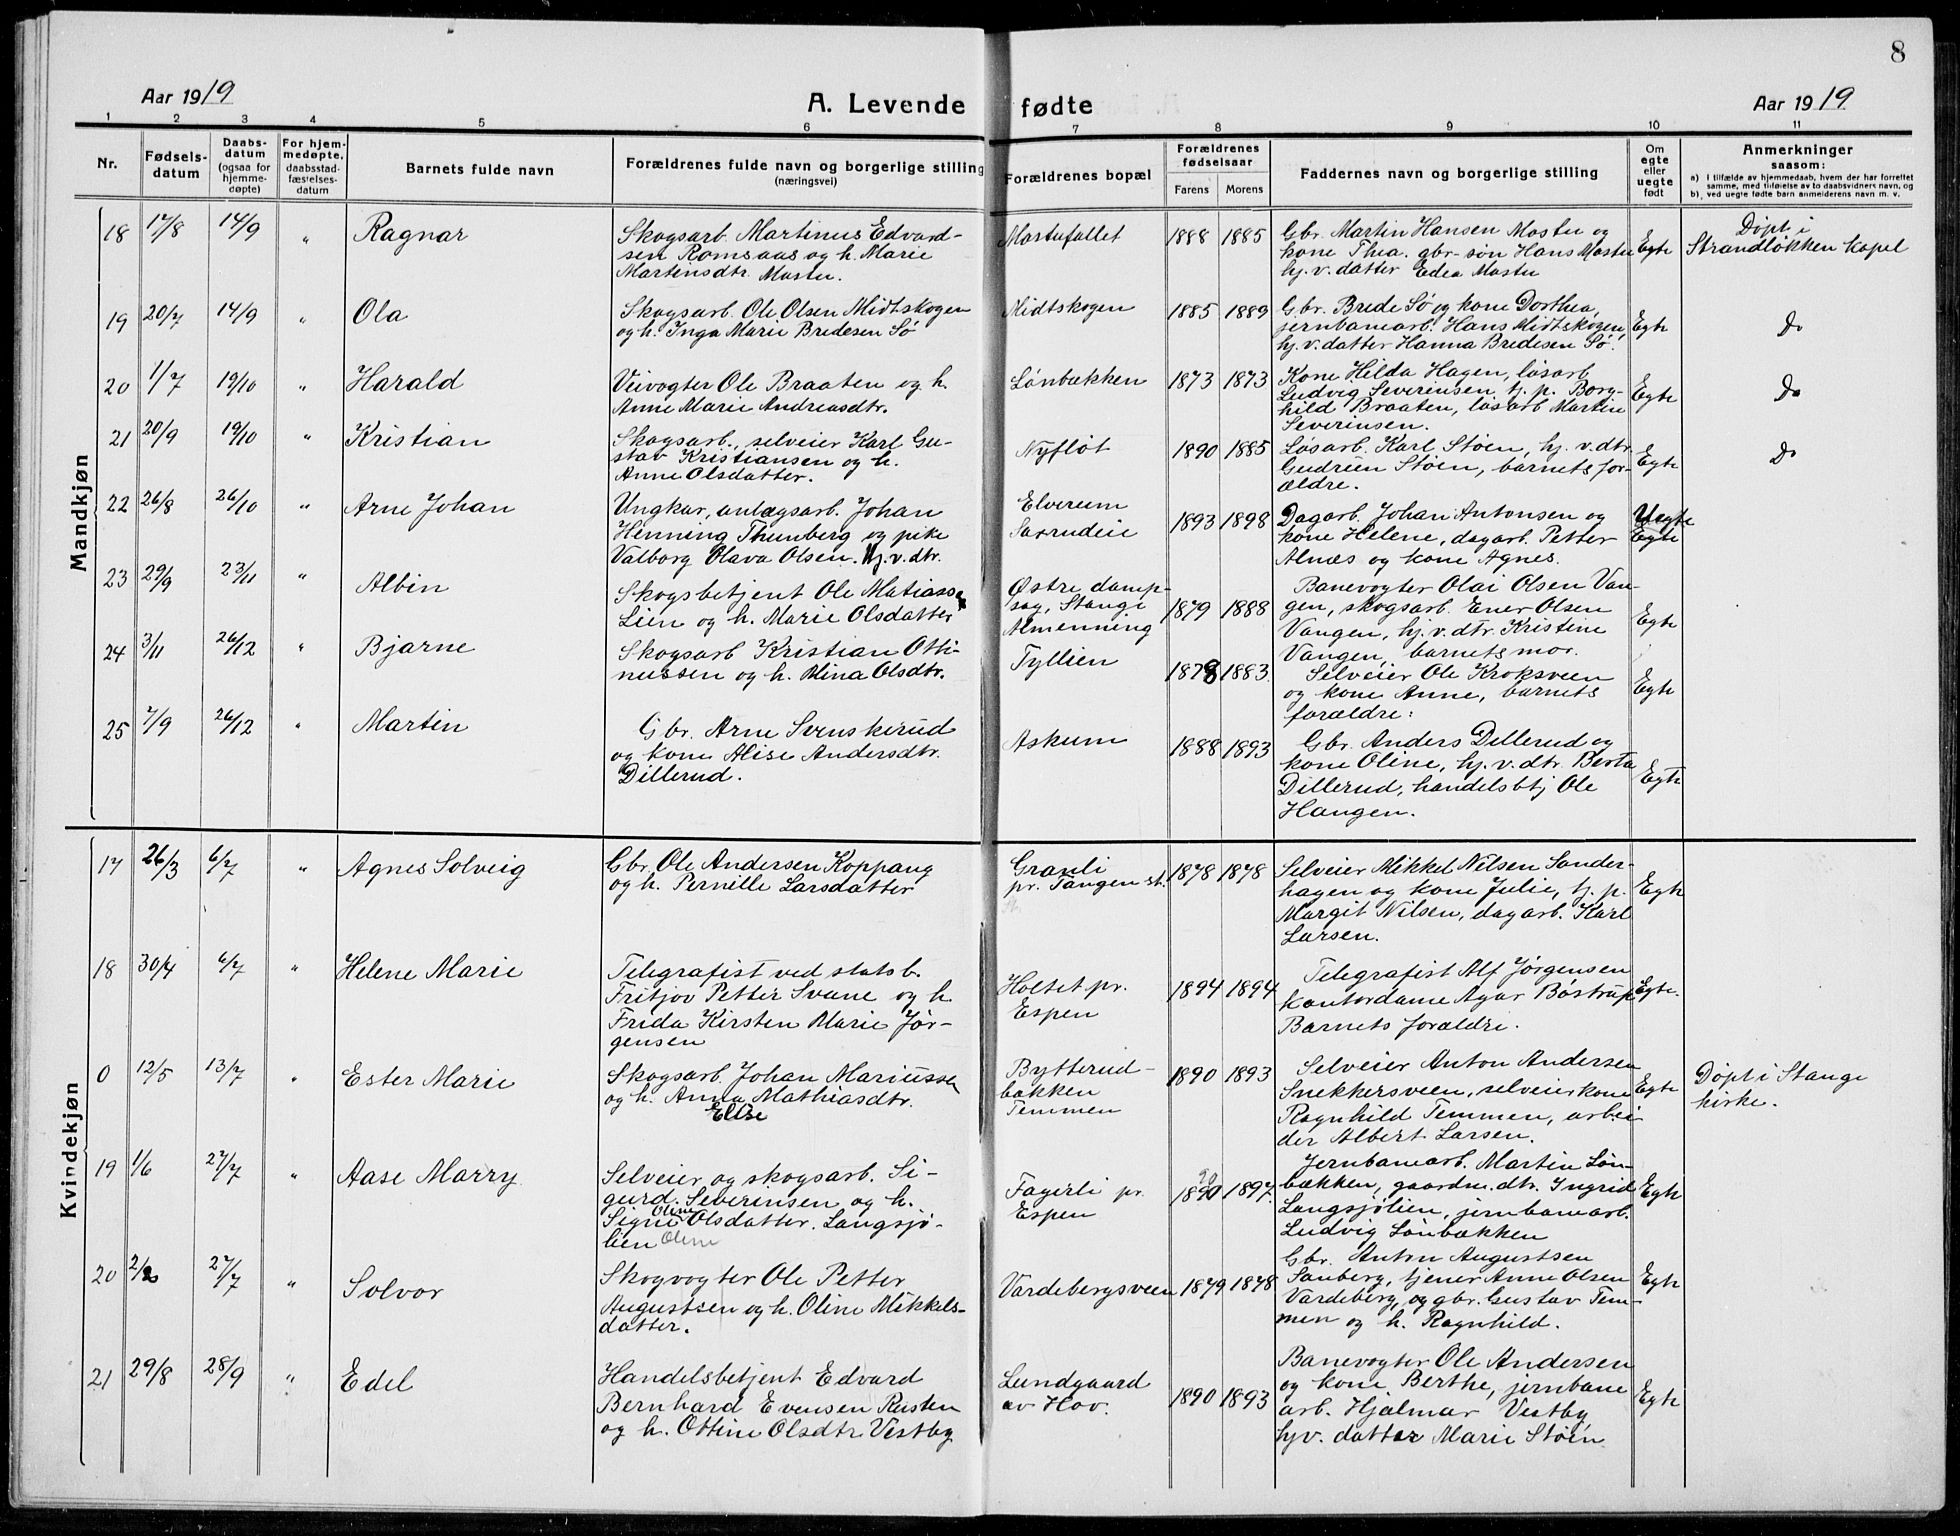 8
Aar 1919
A. Levende fødte
Aar 1919
1 2 3 4 5 6 7 8 9 10 11
Nr.
Fødselsdatum
Daabsdatum (ogsaa for hjemmedøpte)
For hjemmedøpte, daabsstadfæstelsesdatum
Barnets fulde navn
Forældrenes fulde navn og borgerlige stilling
(næringsvei)
Forældrenes bopæl
Forældrenes fødselsaar
Farens
Morens
Faddernes navn og borgerlige stilling
Om egte eller uegte født
Anmerkninger
saasom:
a) I tilfælde av hjemmedaab, hvem der har forrettet
samme, med tilføielse av to daabsvidners navn, og
b) ved uegte født barn anmelderens navn m. v.
Mandkjøn
18 17/8 14/9 " Ragnar
Skogsarb. Martinus Edvard-
sen Romsaas og h. Marie
Martinsdtr. Mostu.
Mortufallet
1888 1885
Gbr. Martin Hansen Mostu og
kone Thea. gbr-søn Hans Mostu
hj. v. datter Edea Mostu
Egte
Døpt i
Strandløkken kapel
19 20/7 14/9 " Ola
Skogsarb. Ole Olsen Midtskogen
og h. Inga Marie Bredesen Sø
Midtskogen
1885 1889
Gbr. Brede Sø og kone Dorthea,
jernbanearb. Hans Midtskogen,
hj. v. datter Hanna Bredesen Sø.
Egte
Do
20 1/7 19/10 " Harald
Veivogter Ole Braaten og h.
Anne Marie Andreasdtr.
Lønbækken
1873 1873
Kone Hilda Hagen, løsarb.
Ludvig Severinsen, tj. p. Borg-
hild Braaten, løsarb Martin
Severinsen.
Egte
Do
21 20/9 19/10 " Kristian
Skogsarb., selveier Karl Gu-
stav Kristiansen og h.
Anne Olsdatter.
Nyfløt
1890 1885
Løsarb. Karl Støen, hj. v. dtr.
Gudrun Støen, barnets for-
ældre.
Egte
Do
22 26/8 26/10 " Arne Johan
Ungkar, anlægsarb. Johan
Henning Thunberg og pike
Valborg Olava Olsen. hj. v. dtr.
Elverum
1893 1898
Dagarb. Johan Antonsen og
kone Helene, dagarb. Petter
Alnæs og kone Agnes.
Uegte
Egte
23 29/9 23/11 " Albin
Skogsbetjent Ole Matiassen
Lien og h. Marie Olsdatter
Østre damp-
sag, Stange
Almenning
1879 1888
Banevogter Olai Olsen Van-
gen, skogsarb. Ener Olsen
Vangen, hj. v. dtr. Kristine
Vangen, barnets mor.
Egte
24 3/11 26/12 " Bjarne
Skogsarb Kristian Otti-
nussen og h. Mina Olsdtr.
Tyllien
1878 1883
Selveier Ole Kroksveen
og kone Anne, barnets
forældre:
Egte
25 7/9 26/12 " Martin
Gbr. Arne Svenskerud
og kone Alise Andersdtr.
Dillerud.
Askum
1888 1893
Gbr. Anders Dillerud og
kone Oline, hj. v. dtr. Berta
Dillerud, handelsbtj Ole
Haugen.
Egte
Kvindekjøn
17 26/3 6/7 " Agnes Solveig
Gbr. Ole Andersen Koppang
og h. Pernille Larsdatter
Granli
pr. Tangen st.
1878 1878
Selveier Mikkel Nilsen Sander-
hagen og kone Julie, tj. p.
Margit Nilsen, dagarb. Karl
Larsen.
Egte
18 30/4 6/7 " Helene Marie
Telegrafist ved statsb.
Fritjov Petter Svane og h.
Frida Kirsten Marie Jør-
gensen
Holtet pr.
Espen
1894 1894
Telegrafist Alf Jørgensen
kontordame Agar Bøstrup
Barnets forældre.
Egte.
0 12/5 13/7 " Ester Marie
Skogsarb. Johan Mariussen
og h. Anna Mathiasdtr.
Elise
Bytterud-
bakken
Temmen
1890 1893
Selveier Anton Andersen
Snekkersveen, selveierkone
Ragnhild Temmen, arbei
der Albert Larsen.
Egte
Døpt i Stange
kirke.
19 1/6 27/7 " Aase Marry
Selveier og skogsarb. Si-
gurd Severinsen og h.
Signe Oline Olsdatter Langsjø-
lien Oline
Fagerli pr.
Espen
1890 90 1897.
Jernbanearb. Martin Løn-
bækken, gaardm. dtr. Ingrid
Langsjølien, jernbanearb.
Ludvig Lønbækken
Egte
20 27/7 " Solvor
Skogvogter Ole Petter
Augustsen og h. Oline Mikkels-
datter.
Vardebergsveen
1879 1878
Gbr. Anton Augustsen
Sanberg, tjener Anne Olsen
Vardeberg, og gbr. Gustav Tem-
men og h. Ragnhild.
Egte
21 29/8 28/9 " Edel
Handelsbetjent Edvard
Bernhard Evensen Rusten
og h. Ottine Olsdtr. Vestby
Lundgaard
av Hov.
1890 1893
Banevogter Ole Andersen
og kone Berthe, jernbane
arb. Hjalmar Vestby
hjv. datter Marie Støen
Egte